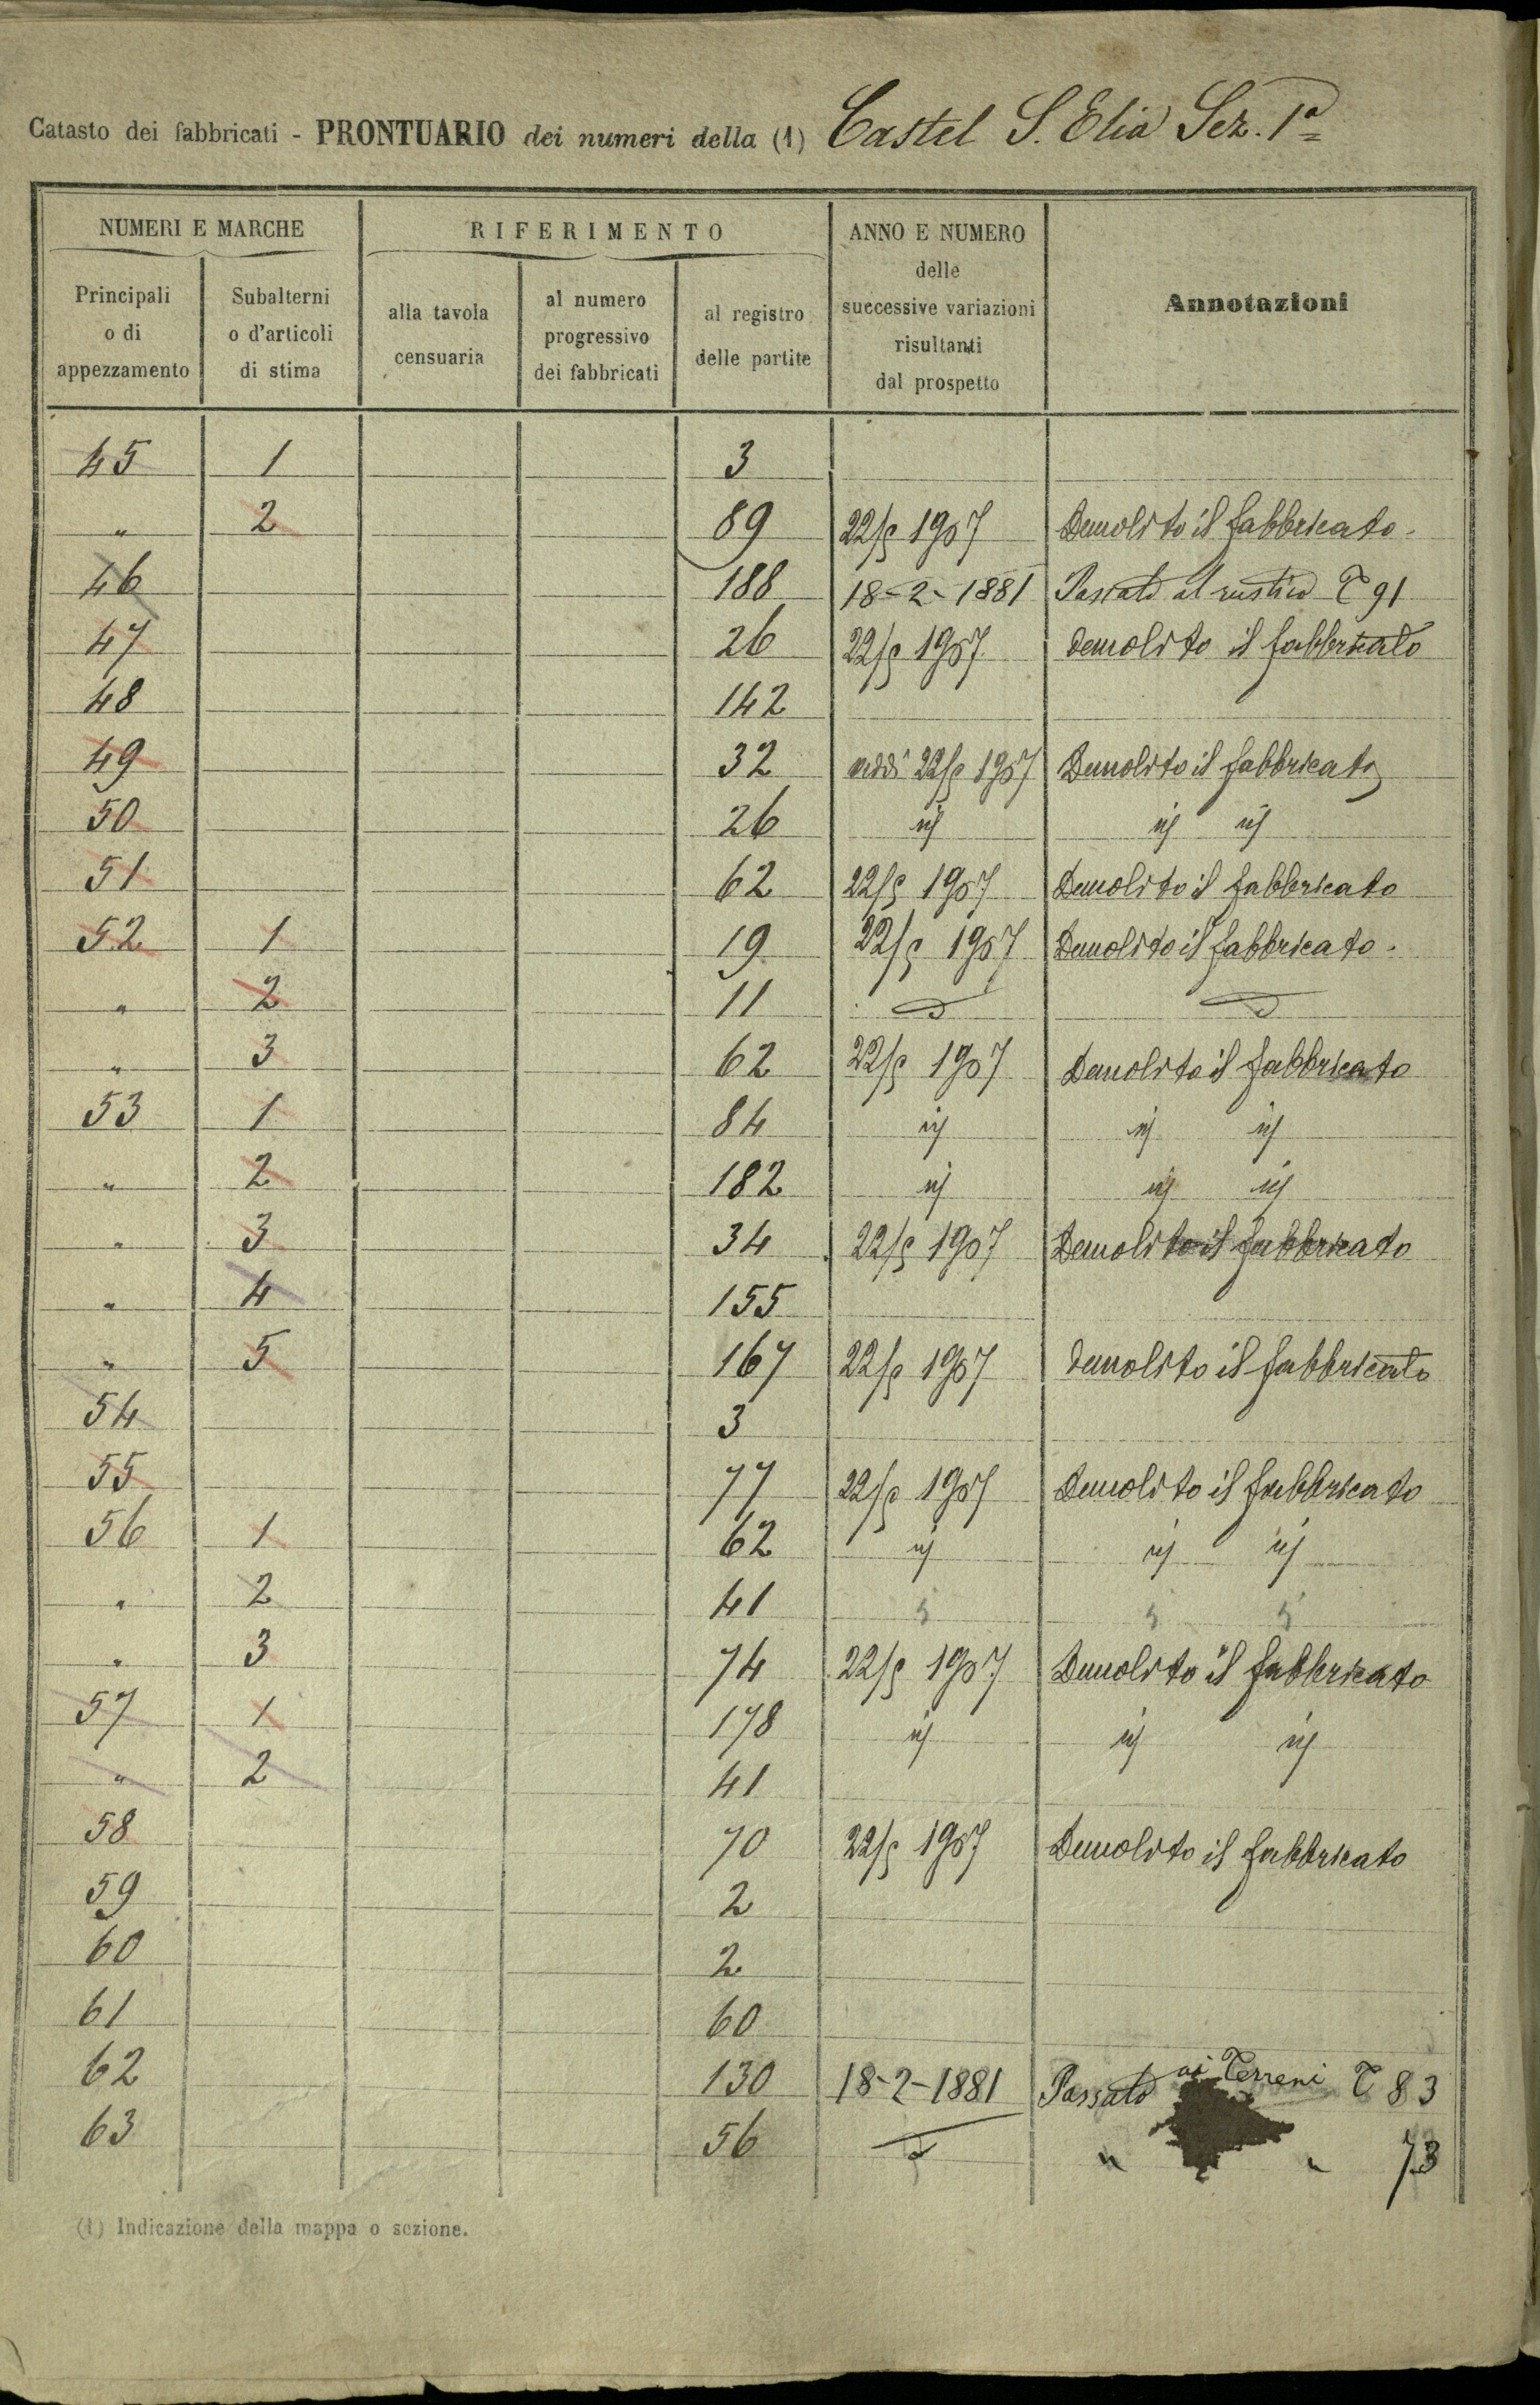 Catasto dei fabbricati - PRONTUARIO dei numeri della (1) Castel S. Elia Sez. 1ª
NUMERI E MARCHE
RIFERIMENTO
ANNO E NUMERO
delle
successive variazioni
risultanti
dal prospetto
Annotazioni
Principali
o di
appezzamento
Subalterni
o d'articoli
di stima
alla tavola
censuaria
al numero
progressivo
dei fabbricati
al registro
delle partite
45 1 3
" 2 89 22/5 1907 Demolito il fabbricato.
46 188 18-2-1881 Passato al rustico T 91
47 26 22/5 1907 demolito il fabbricato
48 142
49 32 22/5 1907 Demolito il fabbricato
50 26 id id id
51 62 22/5 1907 Demolito il fabbricato
52 1 19 22/5 1907 Demolito il fabbricato.
" 2 11
" 3 62 22/5 1907 Demolito il fabbricato
53 1 84 id id id
" 2 182 id id id
" 3 34 22/5 1907 Demolito il fabbricato
" 4 155
" 5 167 22/5 1907 demolito il fabbricato
54 3
55 77 22/5 1907 Demolito il fabbricato
56 1 62 id id id
" 2 41
" 3 74 22/5 1907 Demolito il fabbricato
57 1 178 id id id
" 2 41
58 70 22/5 1907 Demolito il fabbricato
59 2
60 2
61 60
62 130 18-2-1881 Passato ai Terreni T 83
63 56 " " 73
(1) Indicazione della mappa o sezione.